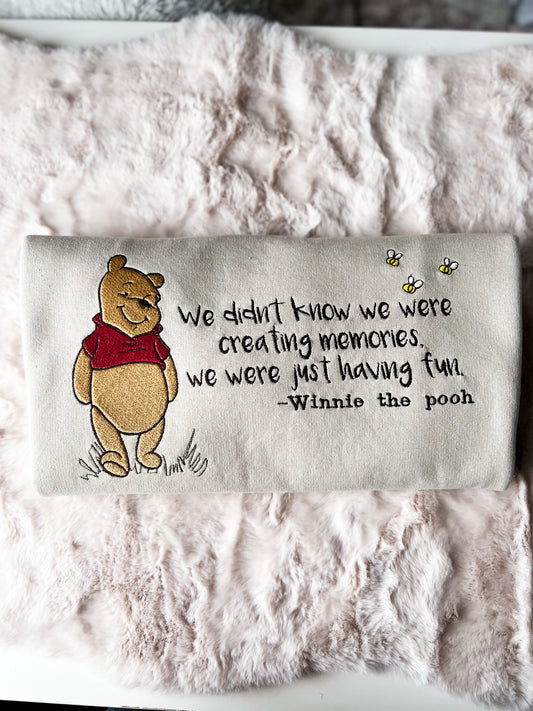 We didn't know we were
creating memories,
we were just having fun.
~Winnie the pooh